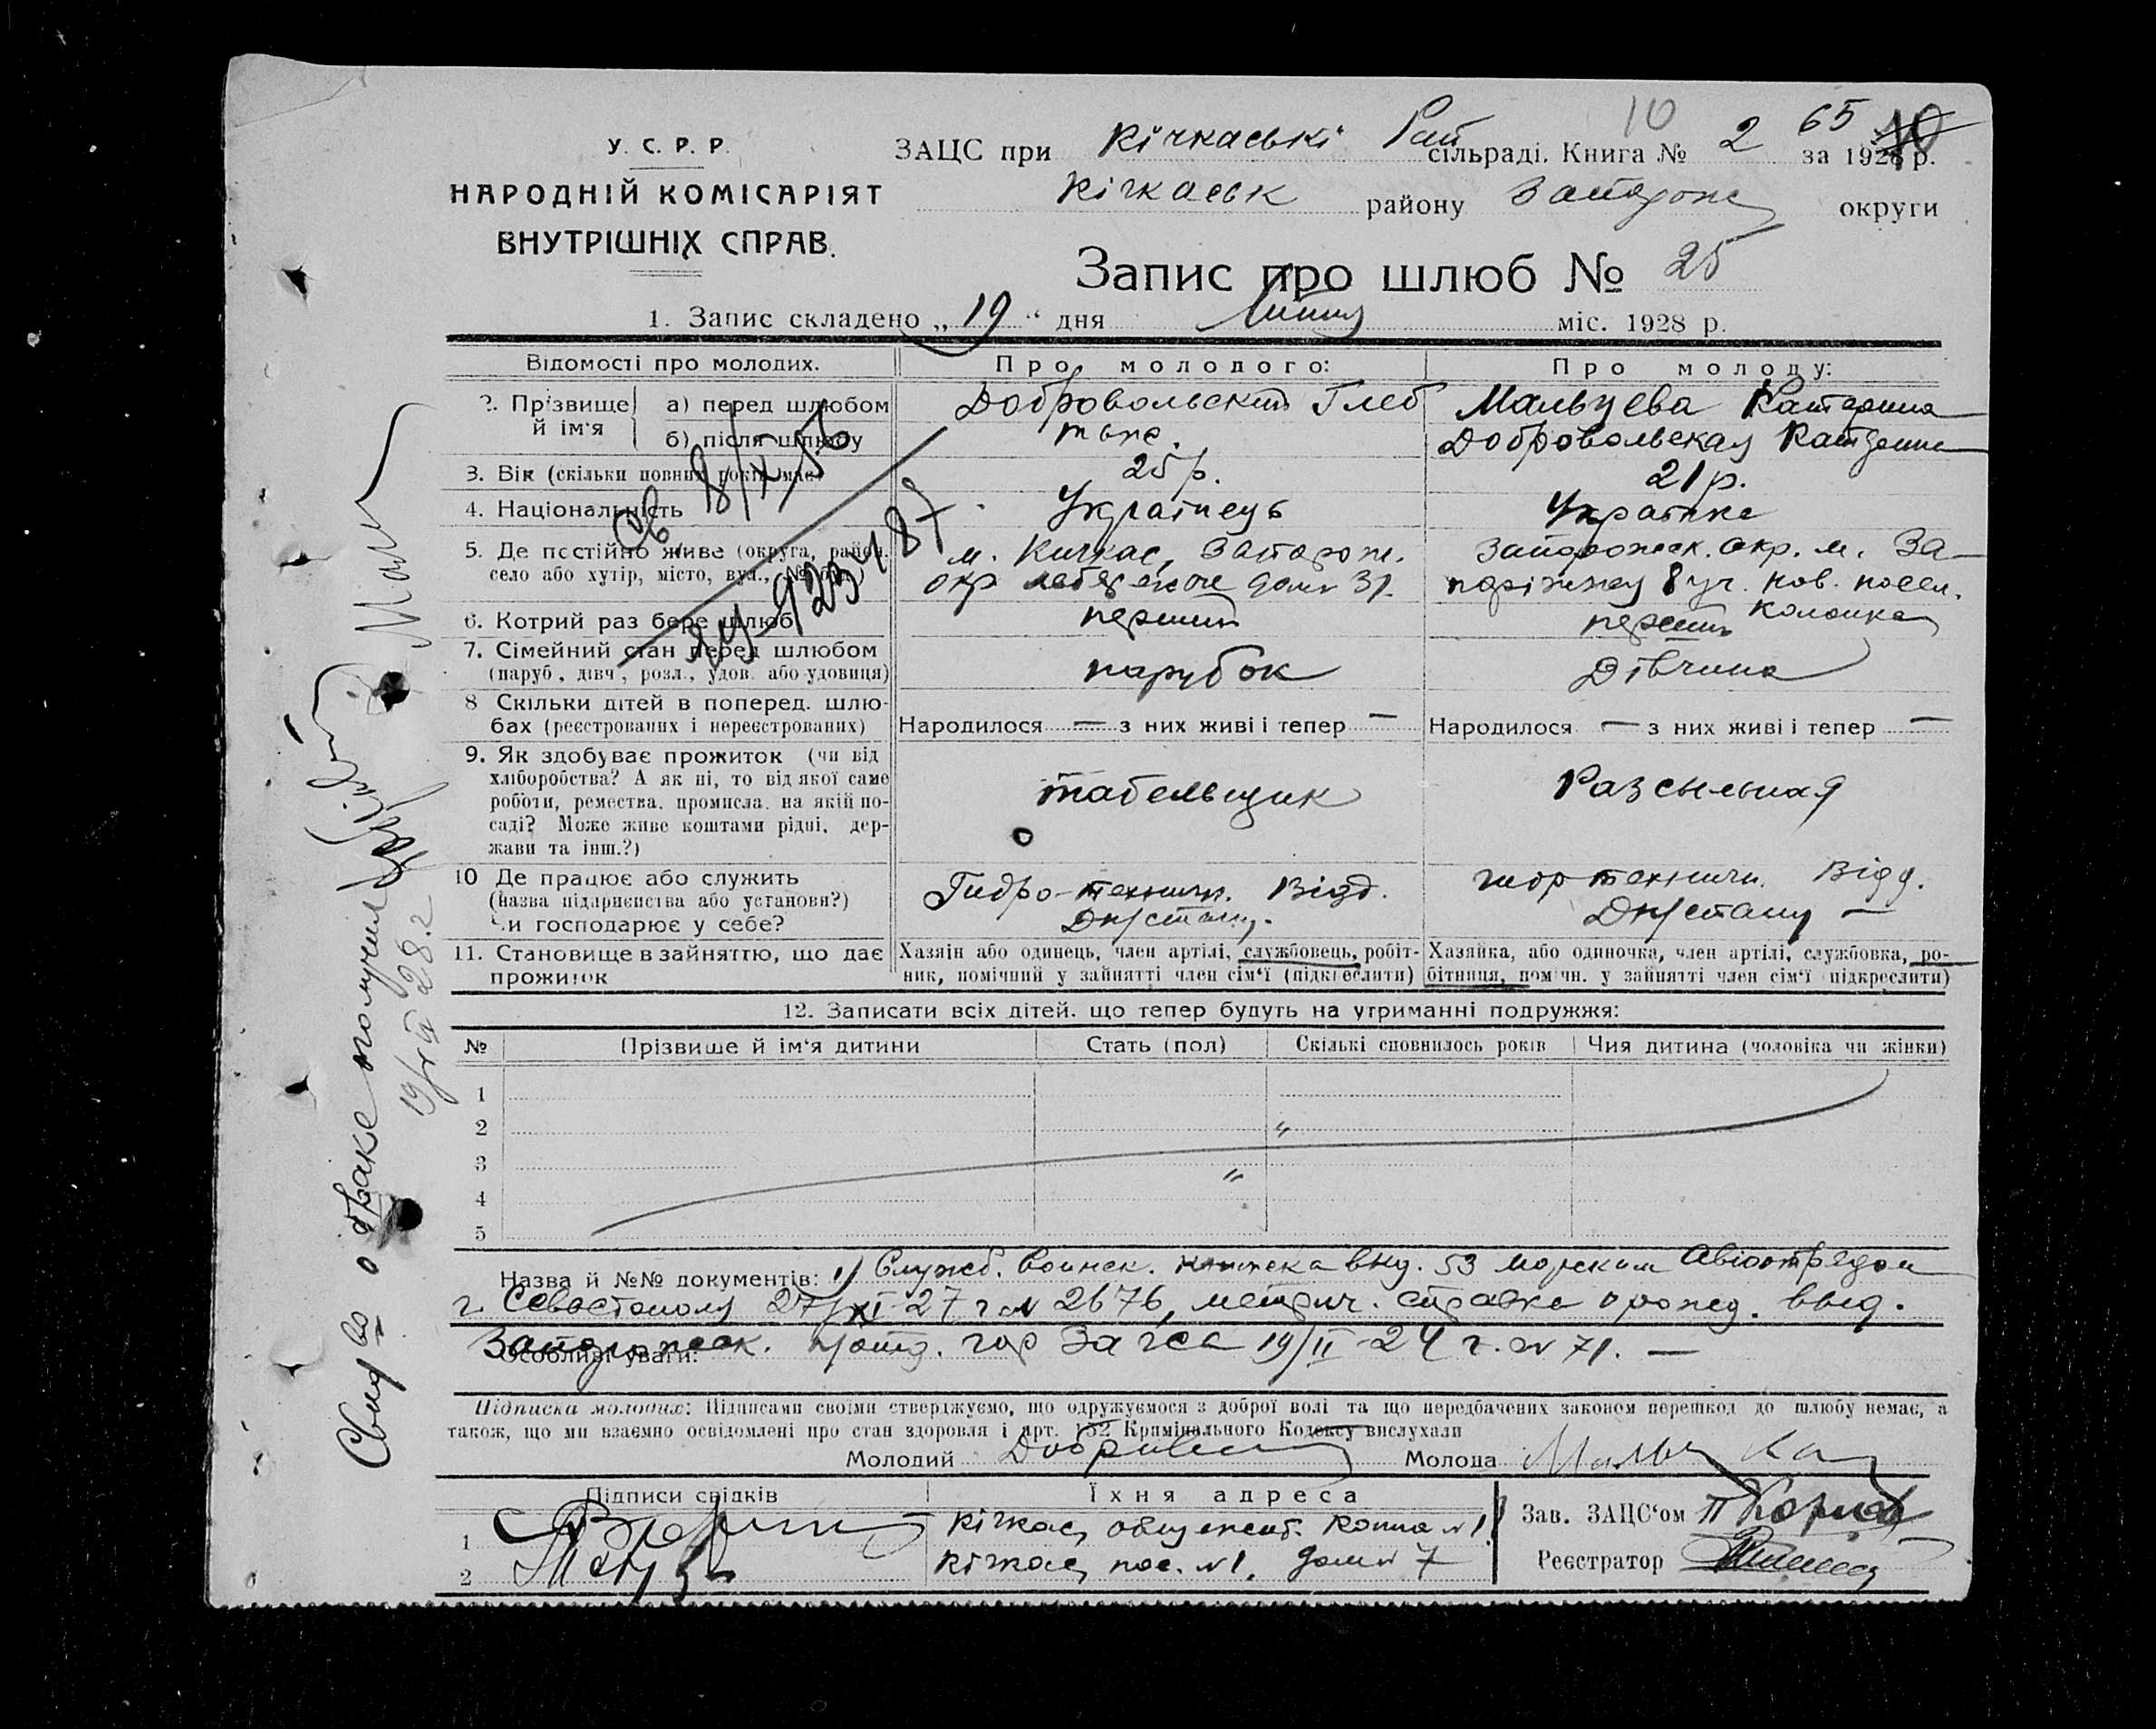 10 65
У. С. Р. Р.
НАРОДНІЙ КОМІСАРІЯТ
ВНУТРІШНІХ СПРАВ.
ЗАЦС при Кічкаські Рай сільраді. Книга № 2 за 1928 р.
Кічкаськ району Запорож округи
Запис про шлюб № 25
1. Запис складено „ 19 “ дня Липня міс. 1928 р.
Відомості про молодих. Про молодого: Про молоду:
2. Прізвище й ім'я а) перед шлюбом Добровольский Глеб Мальцева Катерина
б) після шлюбу Добровольская Катерина
3. Вік (скільки повних років має) 25 р. 21 р.
4. Національність Українець Українка
5. Де постійно живе (округа, район, м. Кичкас, Запорож. Запорожск. окр. м. За-
село або хутір, місто, вул., № ) окр дом № 31. поріжжя 8 уч. нов. посел.
колонка
6. Котрий раз бере шлюб перший перший
7. Сімейний стан перед шлюбом парубок Дівчина
(паруб., дівч., розл., удов. або удовиця)
8 Скільки дітей в поперед. шлю- Народилося — з них живі і тепер — Народилося — з них живі і тепер —
бах (реєстрованих і нереєстрованих)
9. Як здобуває прожиток (чи від табельщик Разсыльная
хліборобства? А як ні, то від якої саме
роботи, ремества, промисла, на якій по-
саді? Може живе коштами рідні, дер-
жави та інш.?)
10 Де працює або служить Гидро-техничн. Відд. техничн. Відд.
(назва підприємства або установи?) Днустану. Днустану —
Чи господарює у себе?
11. Становище в зайняттю, що дає Хазяін або одинець, член артілі, службовець, робіт- Хазяйка, або одиночка, член артілі, службовка, ро-
прожиток ник, помічний у зайнятті член сім'ї (підкреслити) бітниця, помічн. у зайнятті член сім'ї (підкреслити)
12. Записати всіх дітей, що тепер будуть на утриманні подружжя:
№ Прізвище й ім'я дитини Стать (пол) Скількі сповнилось років Чия дитина (чоловіка чи жінки)
1
2 "
3 "
4
5
Назва й №№ документів: 1) Служб. воинск. книжка выд. 53 морским Авіоотрядом
г. Севастополя 27/XI-27 г № 2676, метрич. справка о рожд. выд.
Запорожск. гор Загса 19/II-24 г. № 71. —
Особливі уваги:
Підписка молодих: Підписами своїми стверджуємо, що одружуємося з доброї волі та що передбачених законом перешкод до шлюбу немає, а
також, що ми взаємно освідомлені про стан здоровля і арт. 152 Кримінального Кодексу вислухали
Молодий Молода
Підписи свідків Їхня адреса
1 Кічкас, общежит. №1 Зав. ЗАЦС'ом
2 Кічкас, пос. №1, дом № 7 Реєстратор
Св 8/X-56
ЯУ-923487
Свид-во о браке получил
19/VII 28.